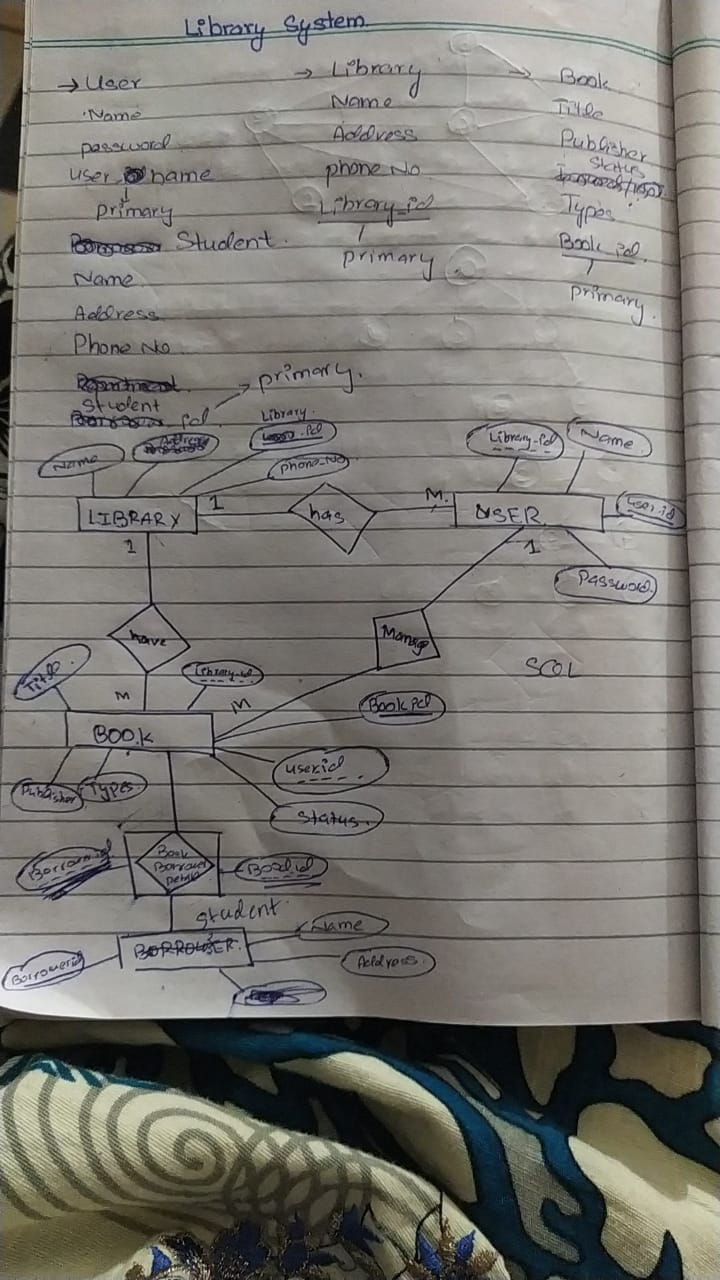 Library System
→ User
Name
password
user name
primary
Student.
Name
Address
Phone No
Student id → primary.
→ Library
Name
Address
phone No
Library_id
primary
→ Book
Title
Publisher
Status
Types
Book_id.
primary.
Name
Address
Library.
id
phone-No
Library-id
Name.
LIBRARY
1
has
M.
USER.
user-id
1
1
Password.
have
Manage
SQL
Title
Library-id
M
M
Book id
BOOK
userid
Publisher
Types
Status.
Book
Borrower
Details
Book-id
student.
Name
BORROWER.
Borrowerid
Address.